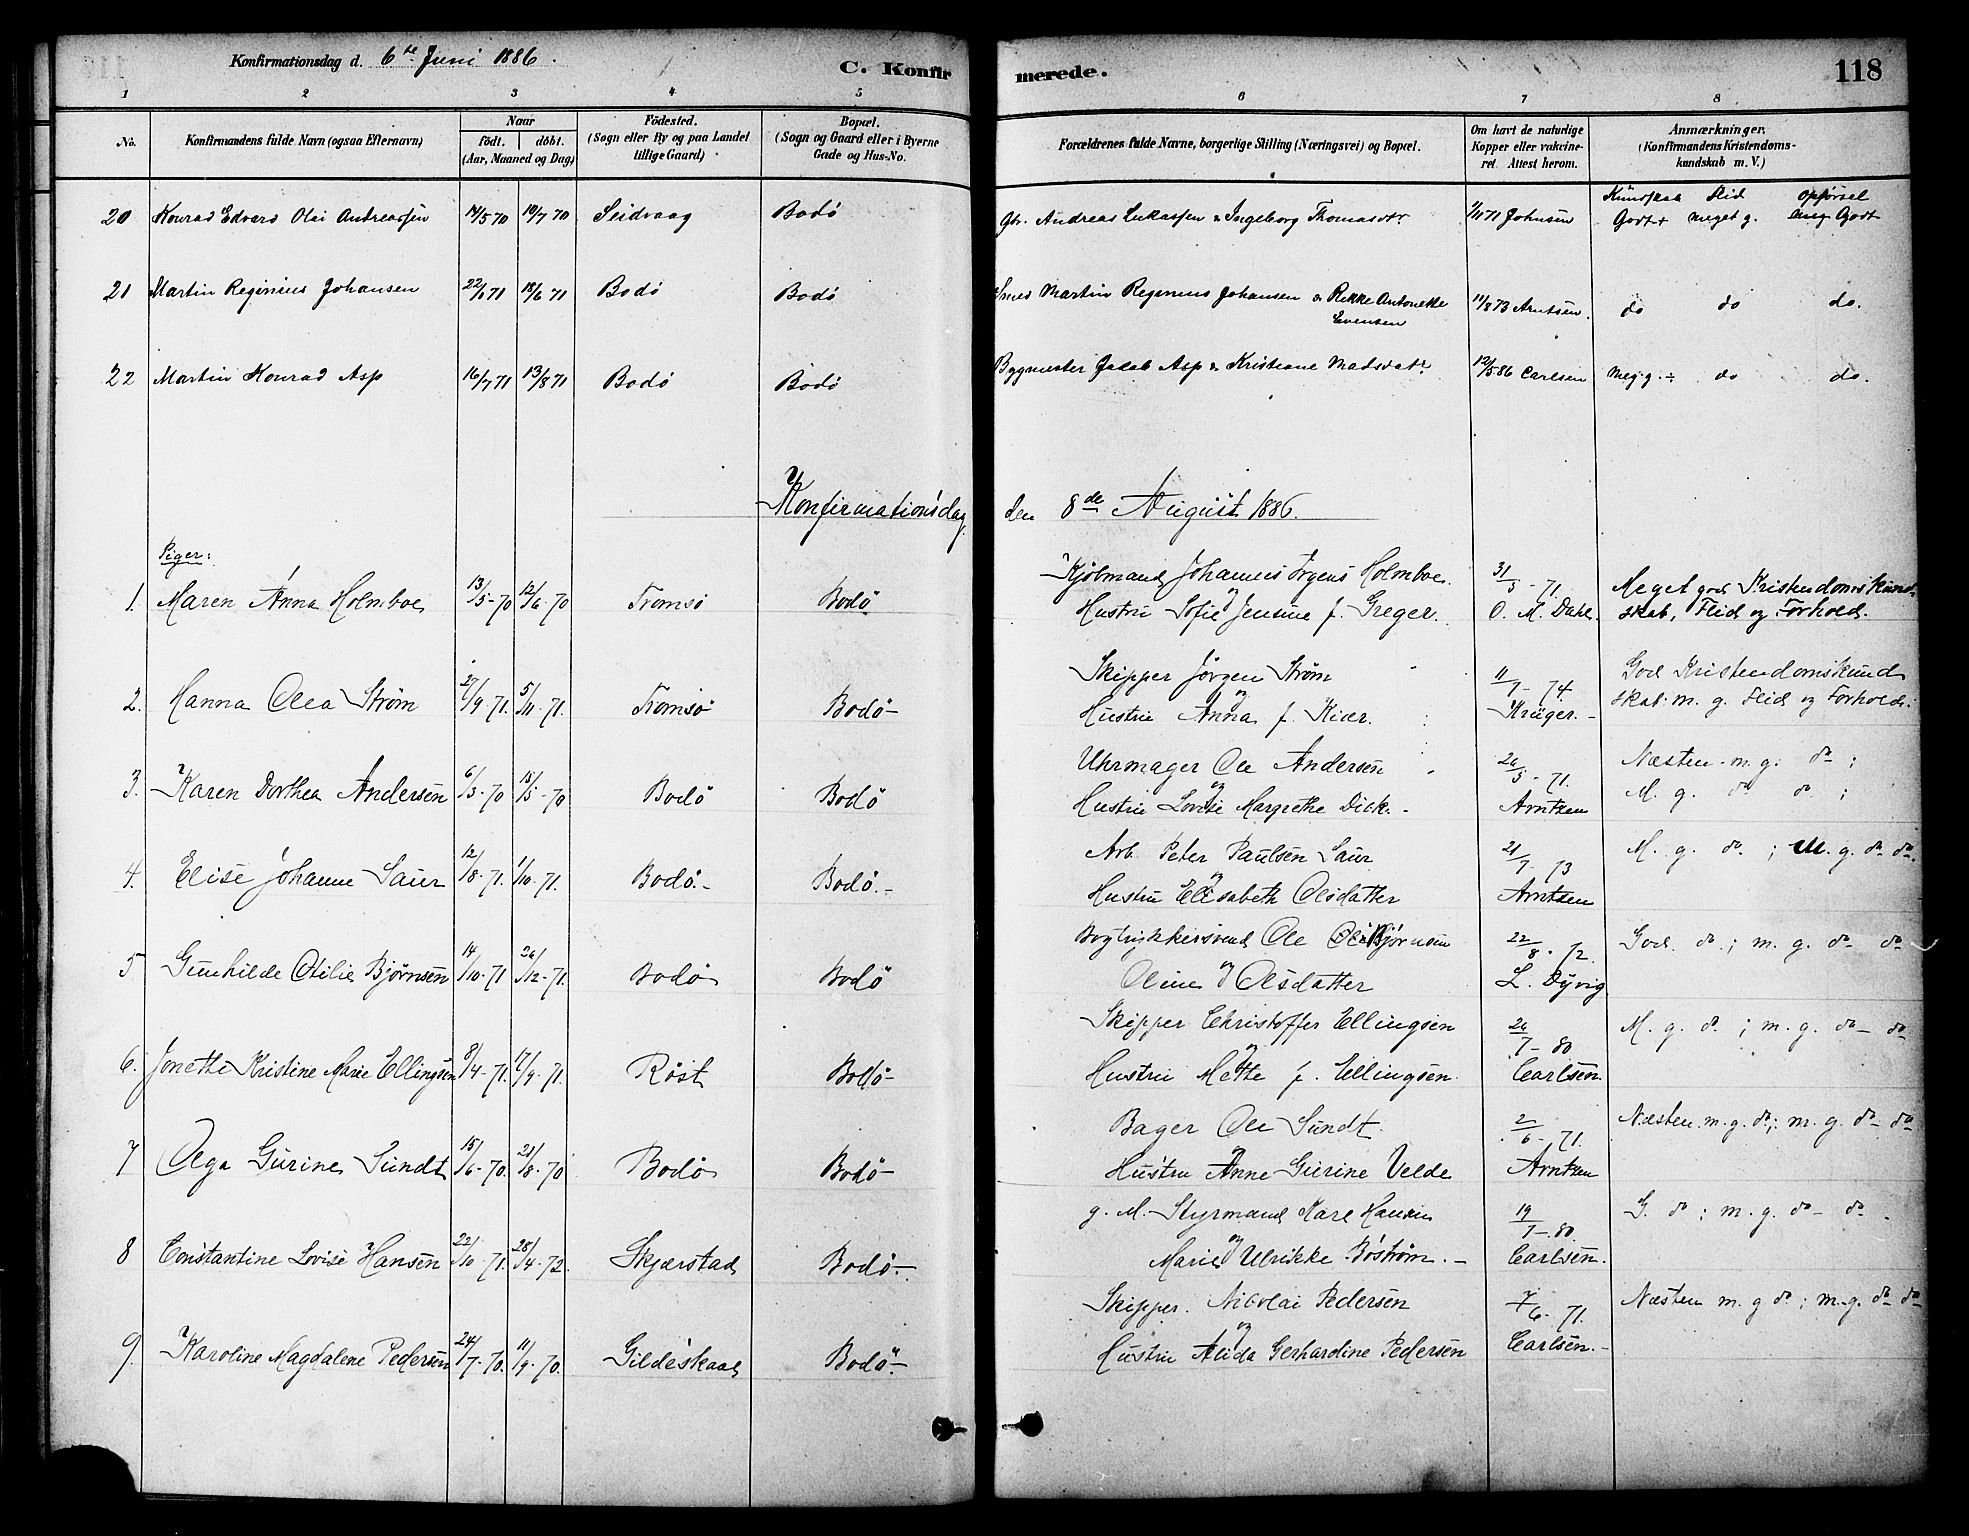 Konfirmationsdag d. 6te Juni 1886.
C. Konfirmerede.
118
1 2 3 4 5 6 7 8
No. Konfirmandens fulde Navn (ogsaa Efternavn) Naar födt. döbt. (Aar, Maaned og Dag) Födested. (Sogn eller By og paa Landet tillige Gaard) Bopæl. (Sogn og Gaard eller i Byerne Gade og Hus-No. Forældrenes fulde Navne, borgerlige Stilling (Næringsvei) og Bopæl. Om havt de naturlige Kopper eller vakcineret. Attest herom. Anmærkninger. (Konfirmandens Kristendomskundskab m. V.)
Kundskaa Flid Opførsel
20 Konrad Edvard Olai Andreassen 14/5 70 10/7 70 Seidvaag Bodö Gbr. Andreas Lukassen & Ingeborg Thomasdtr 1/11 71 Johnsen Godt+ meget g. Godt
21 Martin Reginius Johansen 22/1 71 18/6 71 Bodö Bodö Smed Martin Reginius Johansen & Rikke Antonette 11/8 73 Arntsen. do do do.
Evensen
22 Martin Konrad Asp 16/7 71 13/8 71 Bodö Bodö Bygmester Jakob Asp & Kristiane Madsdatr 12/5 86 Carlsen Meg. g. ÷ do do.
Konfirmationsdag den 8de August 1886.
Piger:
Kjöbmand Johannes Irgens Holmboe 31/5 - 71. Meget god Kristendomskund-
1. Maren Anna Holmboe 13/5-70 12/6-70 Tromsö Bodö og Hustru Sofie Jensine f. Greger. O. M. Dahl. skab, Flid og Forhold.
Skipper Jörgen Strøm 11/7 - 74 God Kristendomskund
2. Hanna Olea Strøm 27/9 71. 5/11-71. Tromsö Bodö- og Hustru Anna f. Kiær. Krüger.- skab. m. g. Flid og Forhold.
Uhrmager Ole Andersen 26/5 - 71. Næsten m. g. do ;
3. Karen Dorthea Andersen 6/3-70 15/5-70 Bodö Bodö og Hustru Lovise Margrethe Dick.- Arntzen M. g. do do ;
Arb. Peter Paulsen Saur 21/7 - 73 M. g. do. ; M. g. do do.
4. Elise Johanne Saur 12/8-71. 1/10-71. Bodö.- Bodö.- og Hustru Elisabeth Olsdatter Arntzen
Bogtrykkersvend Ole Bjørnsen 22/8 - 72. God do ; m. g. do do
5 Gunhilde Otilie Bjørnsen 14/10-71 26/12-71. Bodö Bodö og Oline Olsdatter L. Dyvig
Skipper Christoffer Ellingsen 26/7 - 80 M. g. do ; m. g. do - do
6. Jonette Kristine Marie Ellingsen 8/4-71. 17/9-71. Røst Bodö- og Hustru Mette f. Ellingsen. Carlsen.
Bager Ole Sundt. 2/6 - 71. Næsten m. g. do; m. g. do do
7 Olga Gurine Sundt 15/6-70. 21/8-70 Bodö Bodö- og Hustru Anne Gurine Velde Arntzen
g. M. Styrmand Karl Hansen 19/7-80. G. do ; m. g. do - do .
8 Constantine Lovise Hansen 22/10-71. 28/4-72. Skjærstad Bodö-. og Marie Ulrikke Boström.- Carlsen.
Skipper. Nikolai Pedersen 7/6 - 71. Næsten m. g do ; m. g. do do
9. Karoline Magdalene Pedersen 24/7-70. 11/9-70. Gildeskaal Bodö.- og Hustru Alida Gerhardine Pedersen Carlsen.-